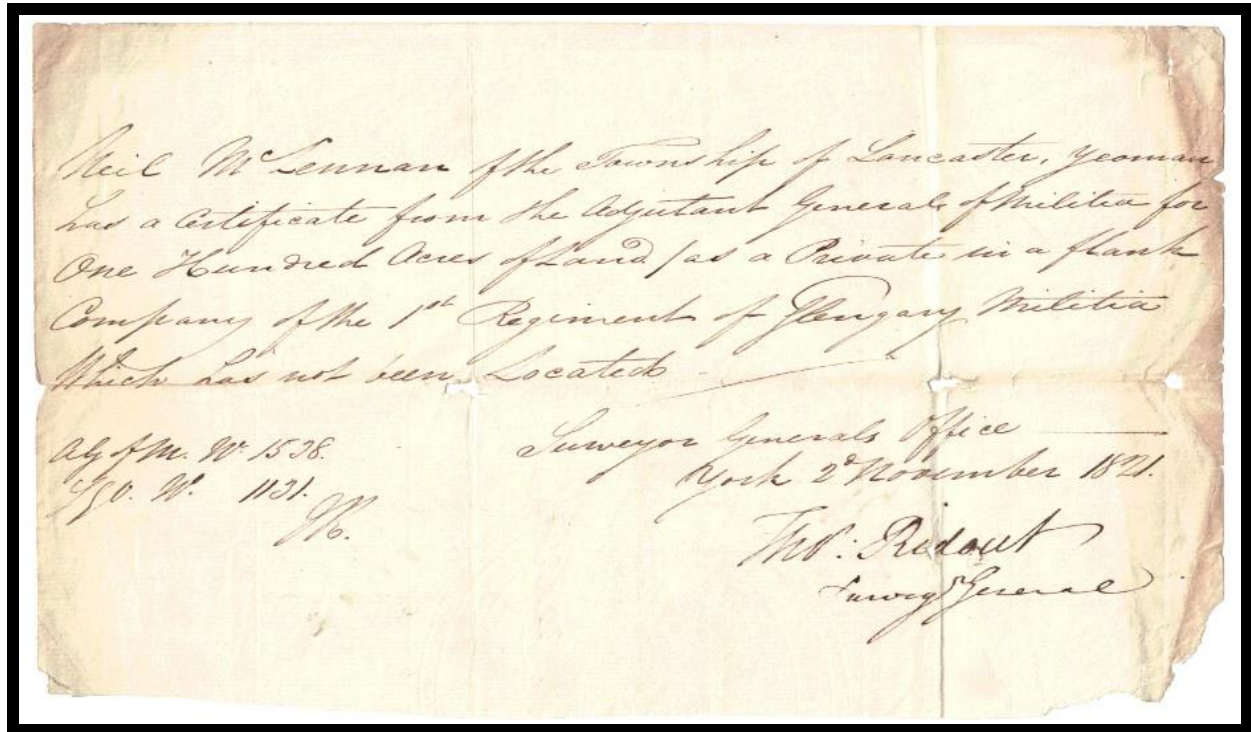 Neil McLennan of the Township of Lancaster, Yeoman
has a Certificate from the Adjutant Generals of Militia for
One Hundred Acres of Land / as a Private in a flank
Company of the 1st Regiment of Glengary Militia
Which has not been Located
Surveyor Generals Office
AG of M. No. 1538.
York 2d November 1821.
SGO. No. 1131.
Thos: Ridout
Survey r General